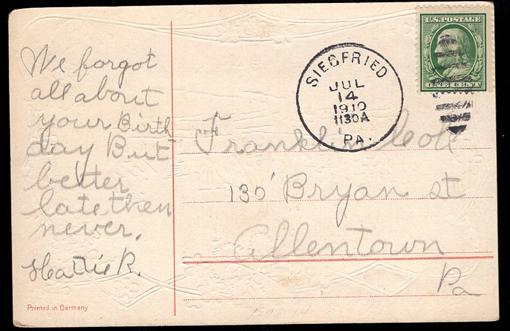 We forgot
all about
your Birth
day But
better
late then
never.
Hattie R.
Printed in Germany
U.S. POSTAGE
ONE CENT
SIEGFRIED
JUL
14
1910
1130A
PA.
Franklin
130 Bryan st
Allentown
Pa